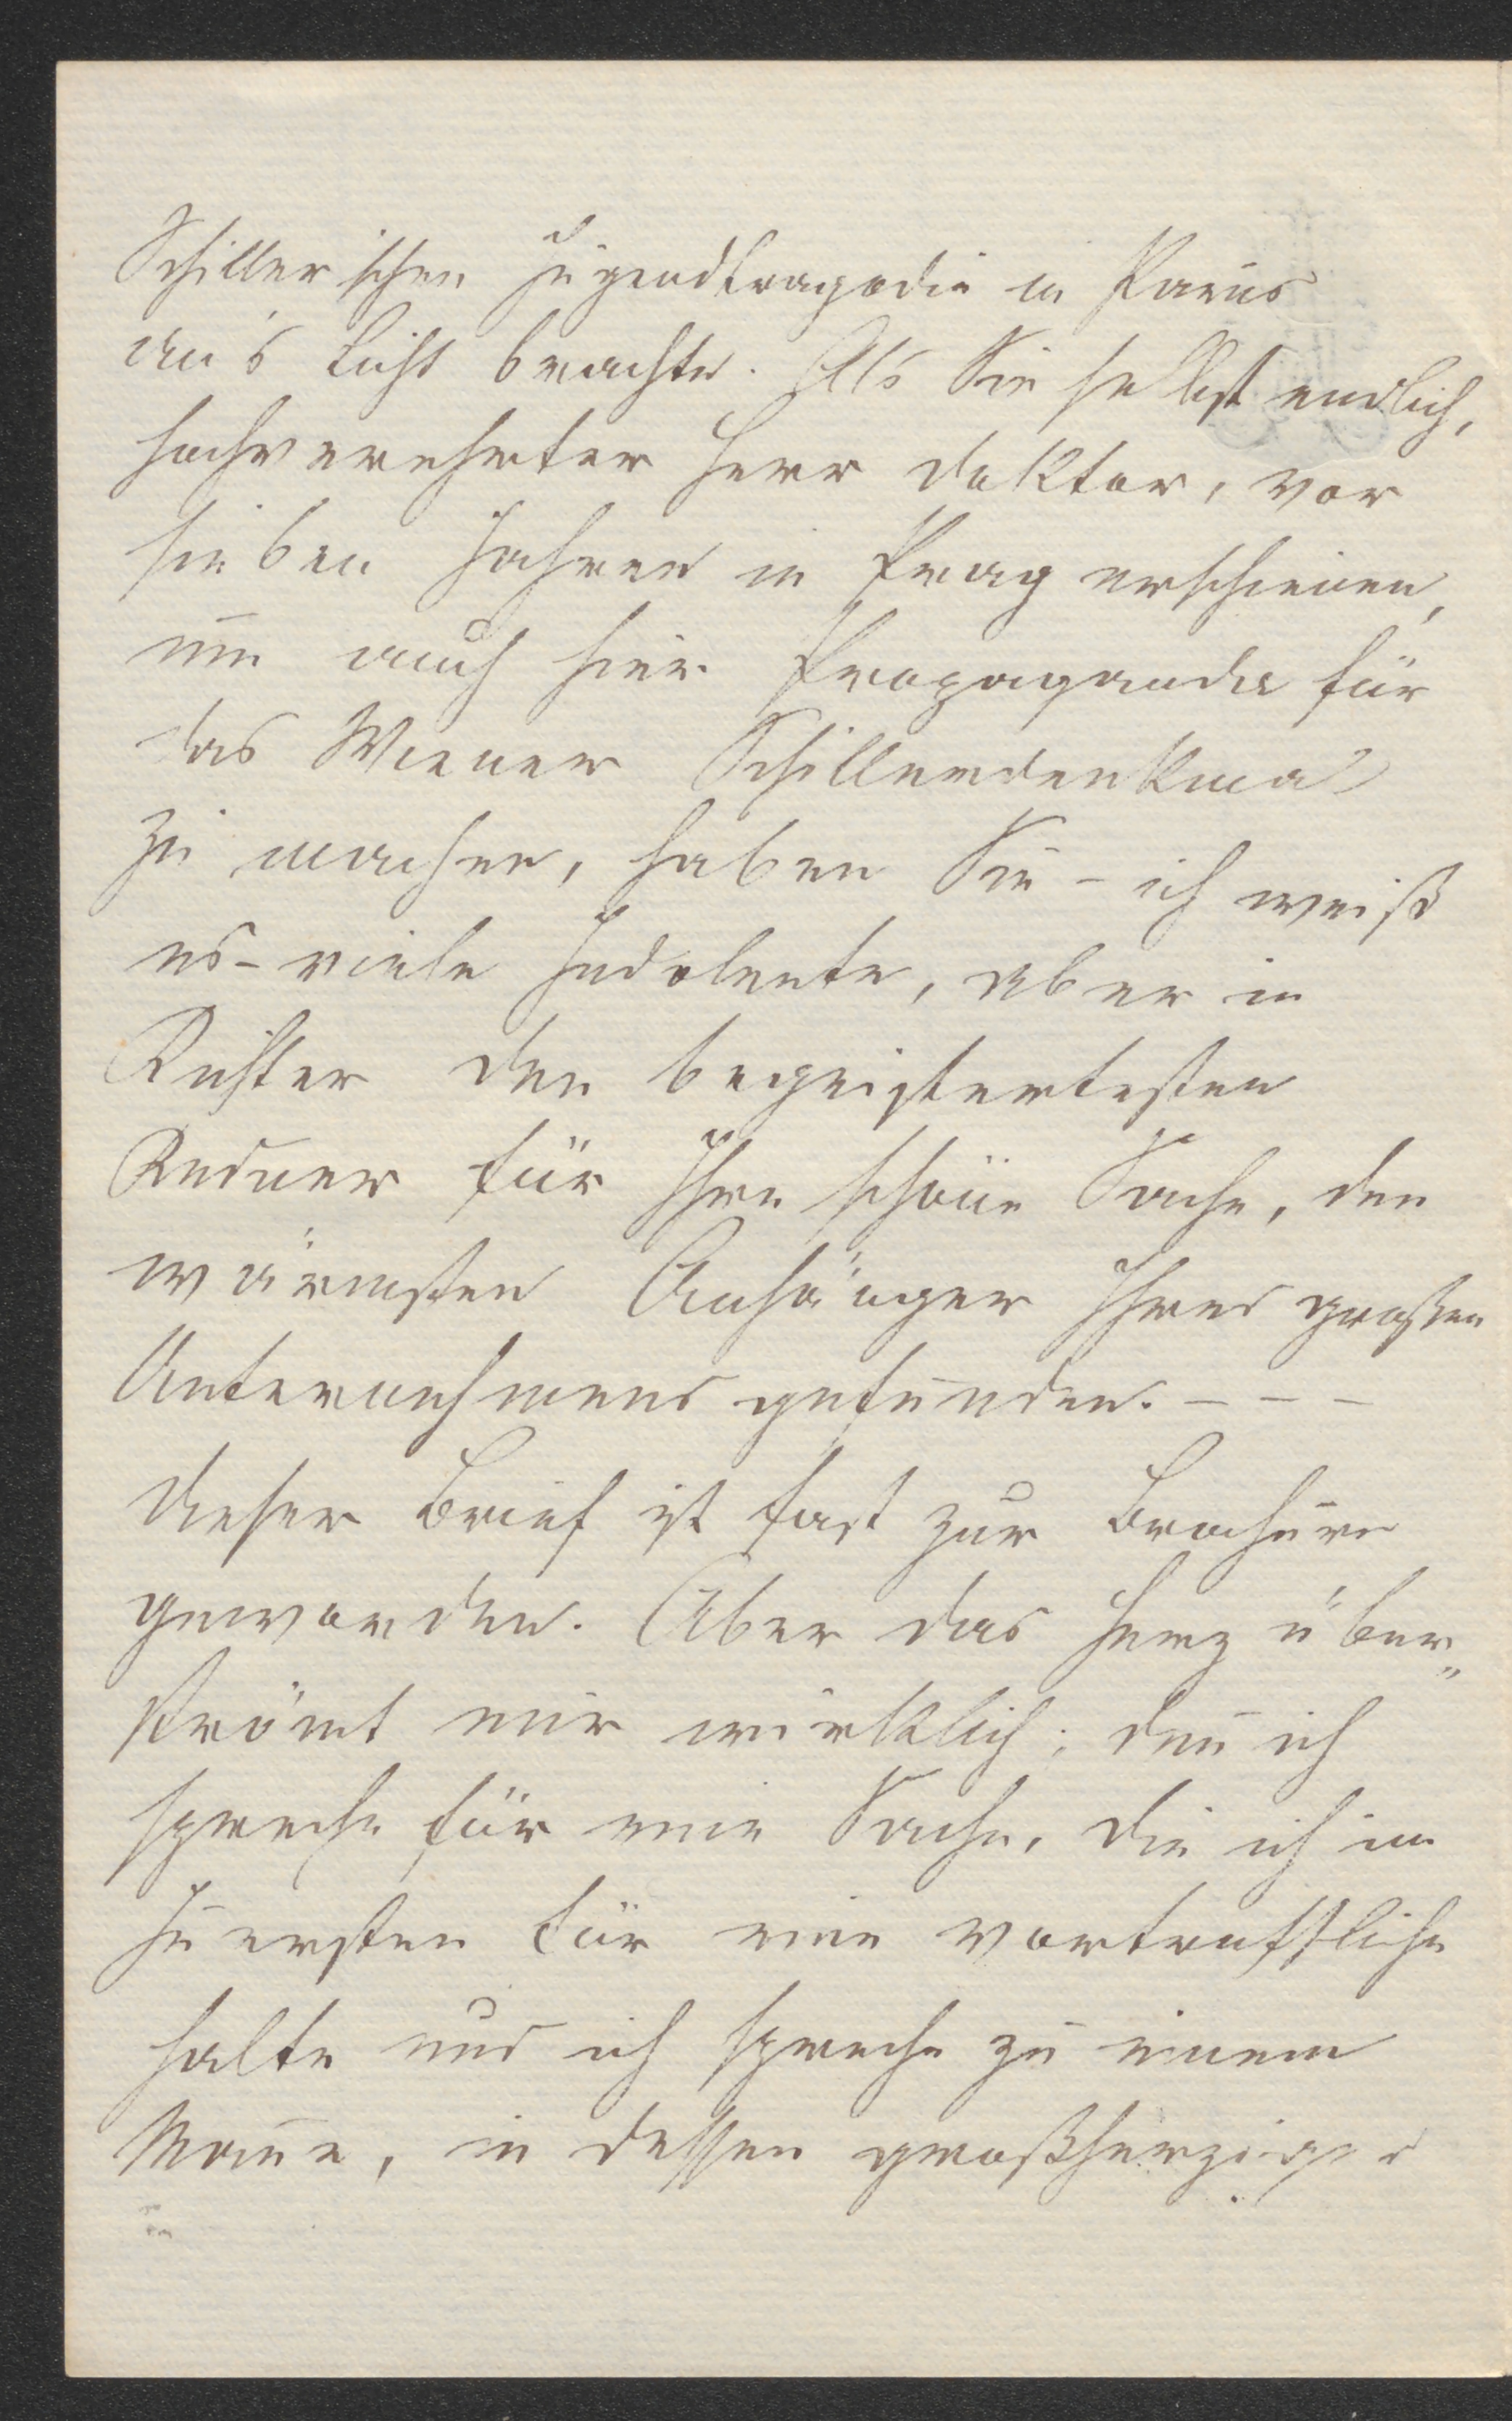 Schiller'schen Jugendtragödie in Paris
an's Licht brachte. Als Sie selbst endlich,
hochverehrter Herr Doktor, vor
sieben Jahren in Prag erschienen,
um auch hier Propaganda für
das Wiener Schillerdenkmal
zu machen, haben Sie – ich weiß
es – viele Indolente, aber in
Richter den begeistertesten
Redner für Ihre schöne Sache, den
wärmsten Anhänger Ihres großen
Unternehmens gefunden. – – –
Dieser Brief ist fast zur Brochüre
geworden. Aber das Herz über„
strömt mir wirklich; deñ ich
spreche für eine Sache, die ich im
Innersten für eine vortreffliche
halte und ich spreche zu einem
Mañe, in dessen großherziger